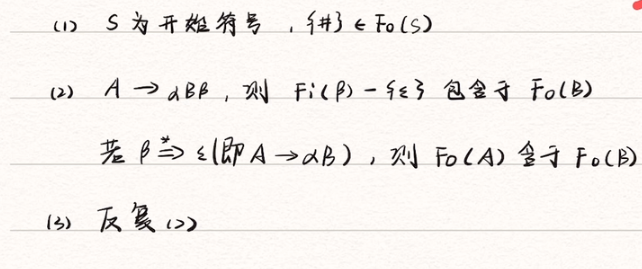 (1) S为开始符号，{#} ∈ Fo(S)
(2) A → αBβ，则 Fi(β) - {ε} 包含于 Fo(B)
若 β *⇒ ε(即 A → αB)，则 Fo(A) 含于 Fo(B)
(3) 反复(2)